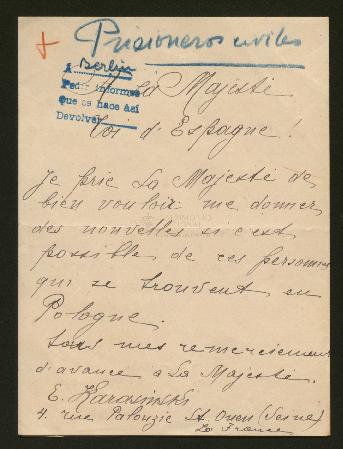 + Prisioneros civiles
A Berlin
Pedir informes
que se hace así
Devolver
A Sa Majesté
Roi d'Espagne !
Je prie Sa Majesté de
bien vouloir me donner
des nouvelles si c'est
possible de ces personnes
qui se trouvent en
Pologne.
tous mes remerciements
d'avance a Sa Majesté.
E. Karasinski
4. rue Palouzie St Ouen (Seine)
La France